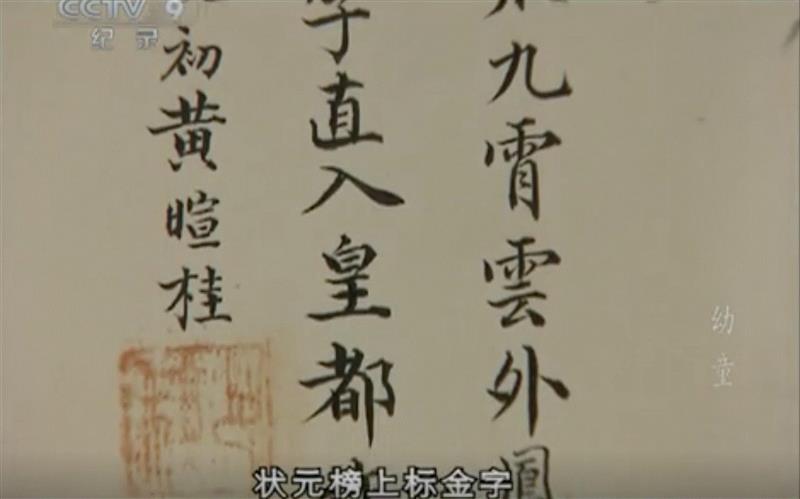 CCTV 9
纪录
九霄雲外
字直入皇都
初黄暄桂
幼童
状元榜上标金字